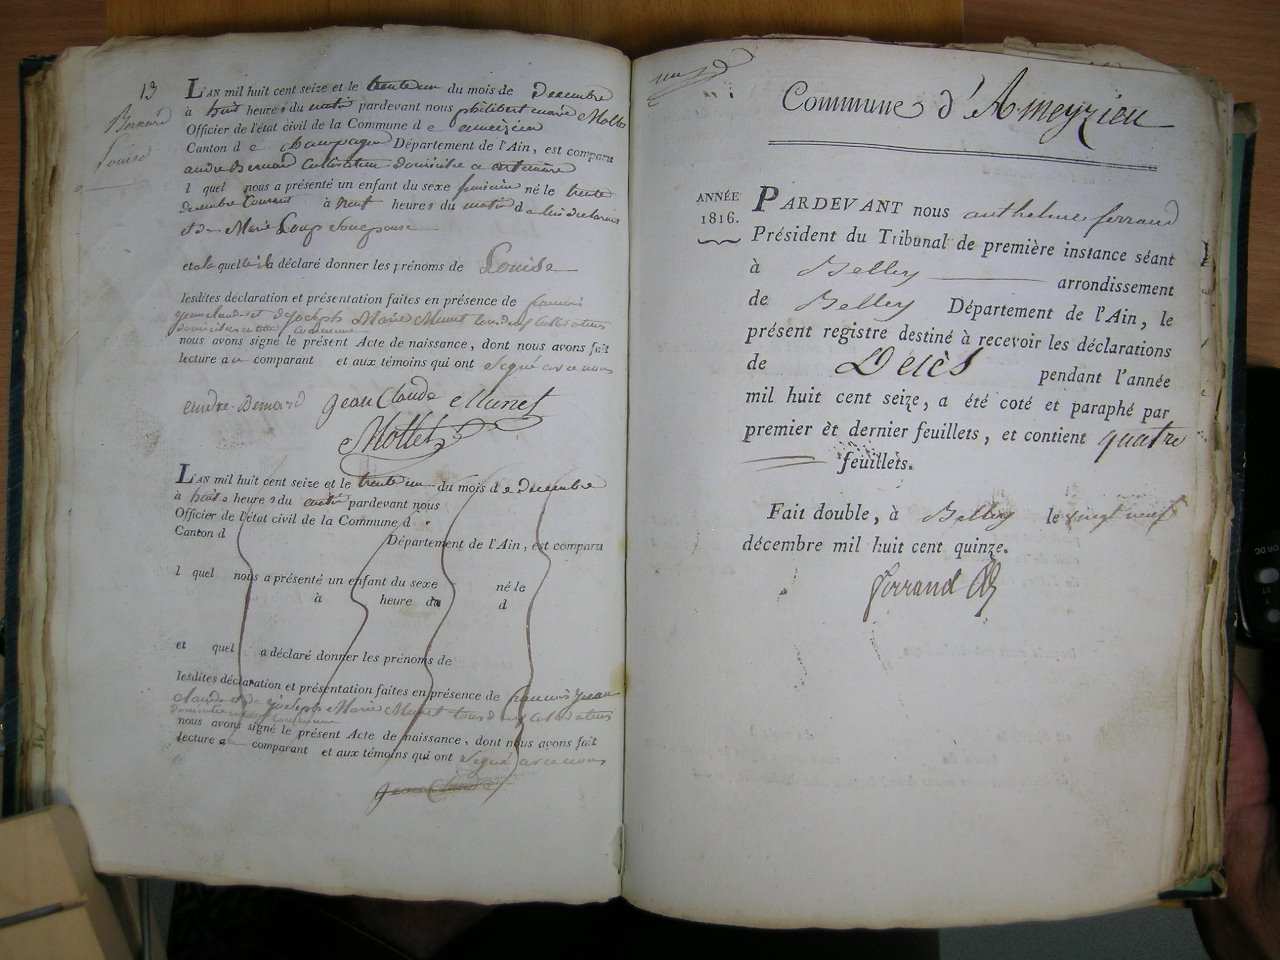 13
Bernard
Louise
L'AN mil huit cent seize et le trente un du mois de decembre
à huit heures du matin pardevant nous philibert marie Mollet
Officier de l'état civil de la Commune d e ameizieu
Canton d e Champagne Département de l'Ain, est comparu
andre Bernard Cultivateur domicilié a
l quel nous a présenté un enfant du sexe feminin né le trente
decembre Courant à neuf heures du matin d e lui declarant
et de Marie Loup Son epouse
et a lquelle il a déclaré donner les prénoms de Louise
lesdites déclaration et présentation faites en présence de francois
jean claude et de joseph Marie Munet tous deux cultivateurs
domicilies en cette Commune
nous avons signé le présent Acte de naissance, dont nous avons fait
lecture au comparant et aux témoins qui ont Signé avec nous
andre Bernard jean Claude Munet
Mollet
L'AN mil huit cent seize et le trente un du mois d e decembre
à huit heures du matin pardevant nous
Officier de l'état civil de la Commune d
Canton d Département de l'Ain, est comparu
l quel nous a présenté un enfant du sexe né le
à heure du d
et quel a déclaré donner les prénoms de
lesdites déclaration et présentation faites en présence de francois jean
claude et de joseph Marie Munet tous deux cultivateurs
domicilies en cette Commune
nous avons signé le présent Acte de naissance, dont nous avons fait
lecture au comparant et aux témoins qui ont Signé avec nous
jean Claude
Commune d'Ameyzieu
ANNÉE
1816.
PARDEVANT nous anthelme ferrand
Président du Tribunal de première instance séant
à Belley arrondissement
de Belley Département de l'Ain, le
présent registre destiné à recevoir les déclarations
de Décès pendant l'année
mil huit cent seize, a été coté et paraphé par
premier et dernier feuillets, et contient quatre
feuillets.
Fait double, à Belley le vingt neuf
décembre mil huit cent quinze.
ferrand